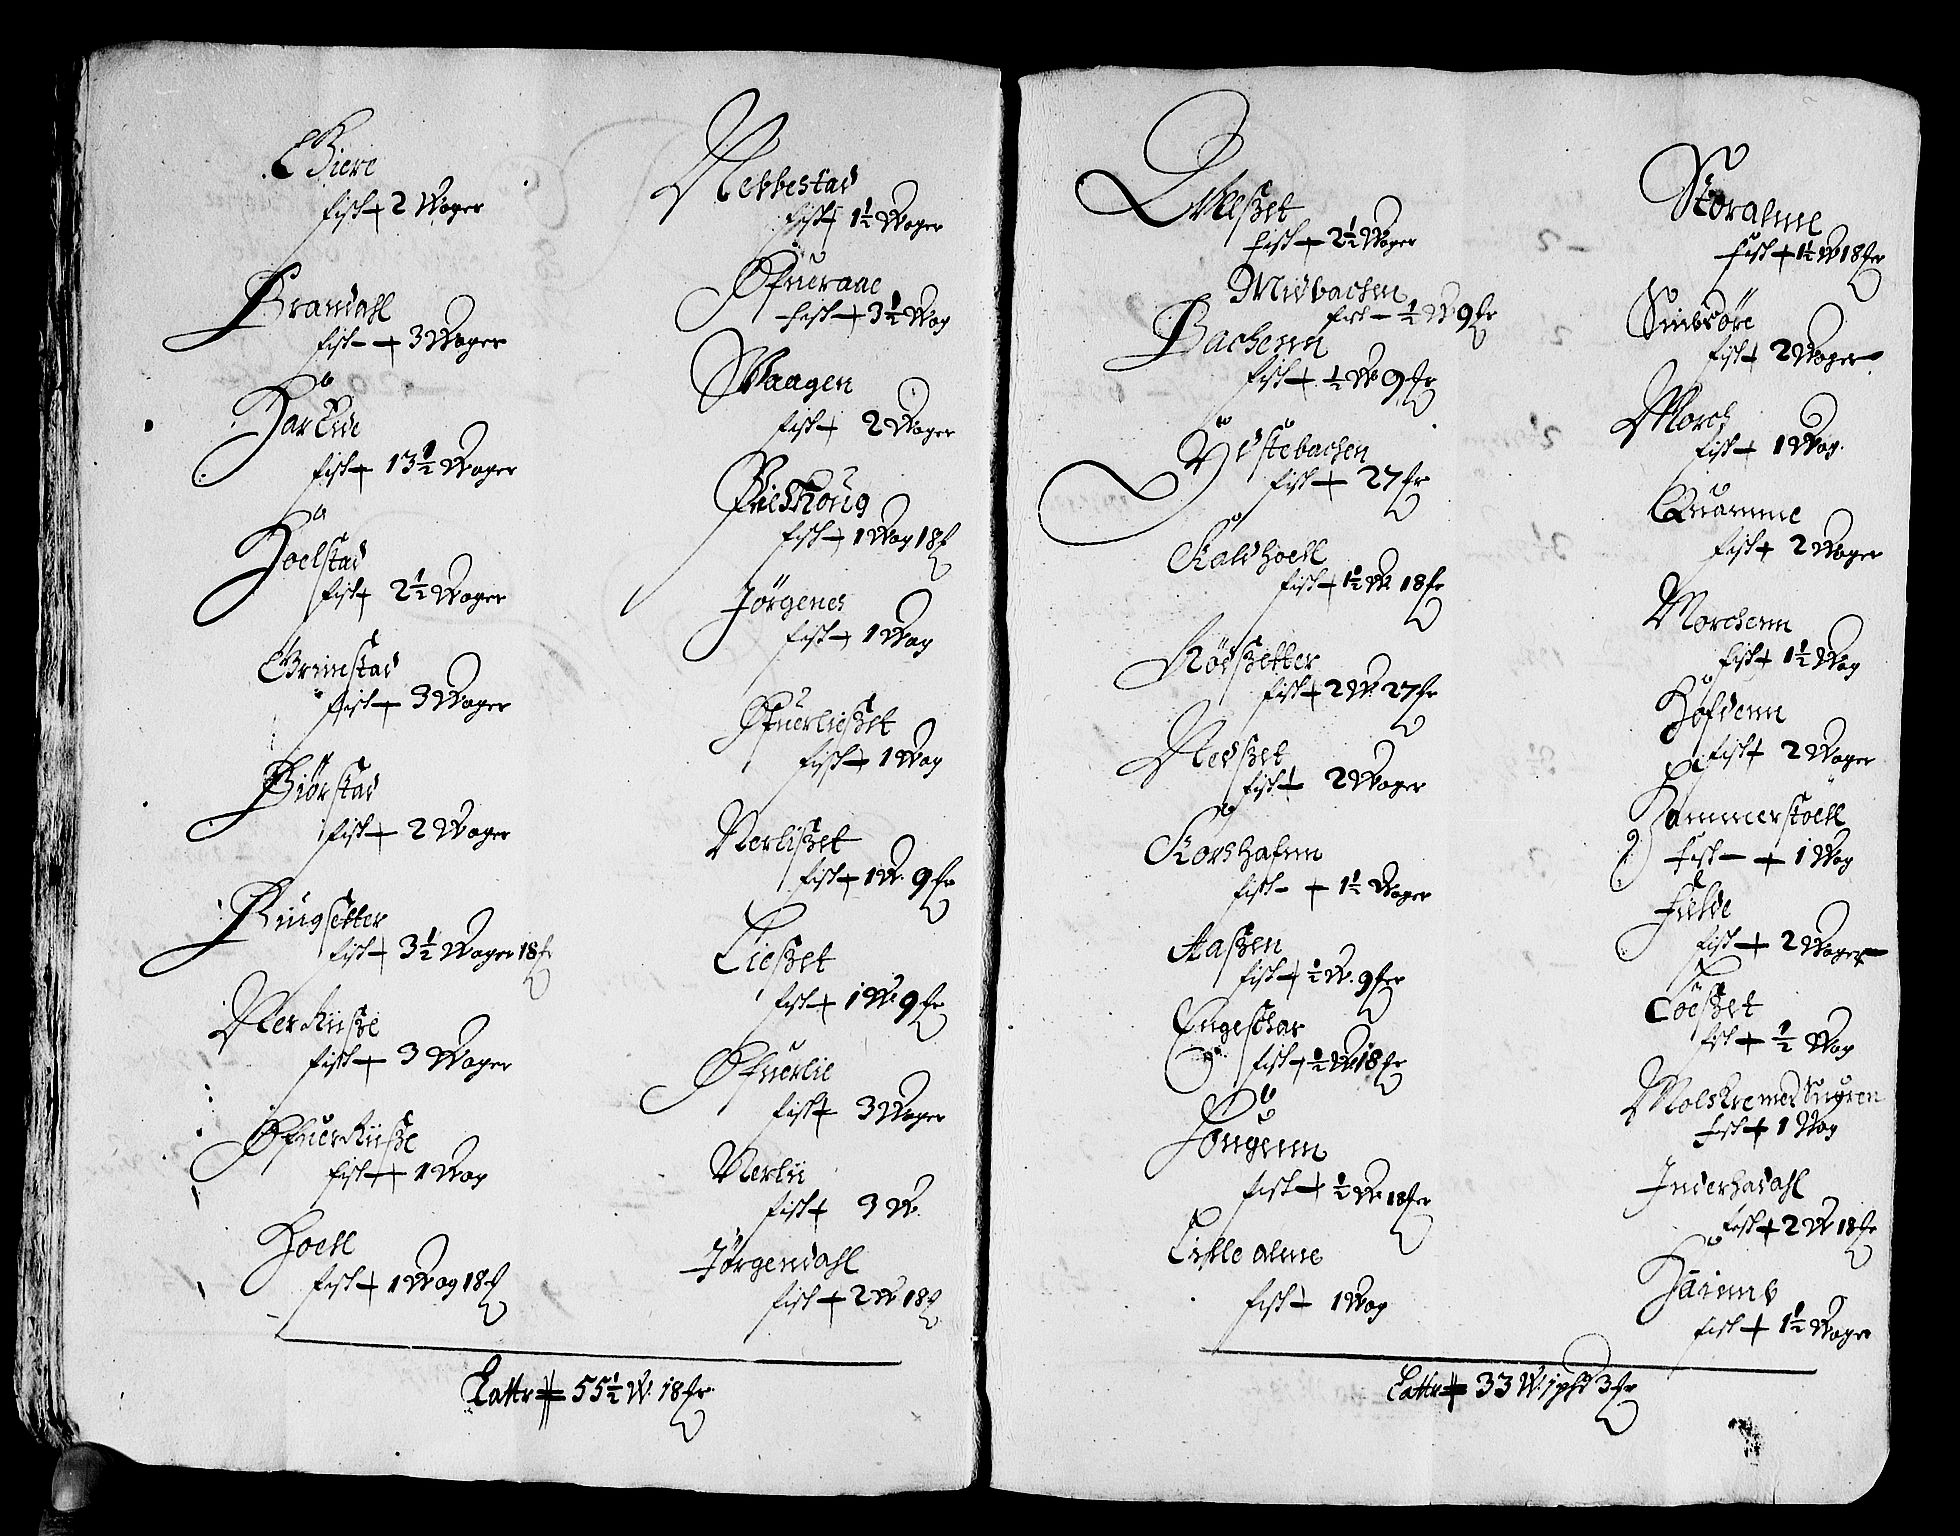 Giere
fisk 2 Woger
Brandahl
fisk 3 Woger
Har Eide
fisk 13½ Woger
Hoelstad
fisk 2½ Woger
Grimstad
fisk 3 Woger
Biørstad
fisk 2 Woger
Ringsetter
fisk 3½ Woger 18 fr
Ner Riisze
fisk 3 Woger
Øfuer Riisze
fisk 1 Wog
Hoell
fisk 1 Wog 18 f
Nebbestad
fisk 1½ Woger
Øfueraae
fisk 3½ Wog
Waagen
fisk 2 Woger
fisk 1 Wog 18 f
Jørgenes
fisk 1 Wog
Øfuerlieszet
fisk 1 Wog
Nerliszet
fisk 1 W. 9 fr
Lieszet
fisk 1 W. 9 fr
Øfuerlie
fisk 3 Woger
Nerlii
fisk 3 W.
Jørgendahl
fisk 2 W 18 f
Lattr 55½ W. 18 fr
fisk 2½ Woger
Midbachen
fisk ½ W. 9 fr
Bachenn
fisk ½ W 9 fr
Ydstebachen
fisk 27 fr
Kaldhoell
fisk 1½ W. 18 fr
Rødszetter
fisk 2 W. 27 fr
Nedszet
fisk 2 Woger
Korshafnn
fisk 1½ Woger
Aaszen
fisk ½ W. 9 fr
Engeschar
fisk ½ W 18 fr
Hougenn
fisk ½ W. 18 fr
Lislle alme
fisk 1 Wog
Storalme
fisk 1½ W 18 fr
Sindøre
fisk 2 Woger
Morch
fisk 1 Wog
Quamme
fisk 2 Woger
Morchenn
fisk 1½ Wog
Hofdenn
fisk 2 Woger
Hammerstoell
fisk 1 Wog
Fielde
fisk 2 Woger
Løeszet
fisk ½ Wog
Molskremer Sugren
fisk 1 Wog
Inderhadahl
fisk 2 W 18 fr
fisk 1½ Woger
Lattr 33 W. 1 phd 3 fr